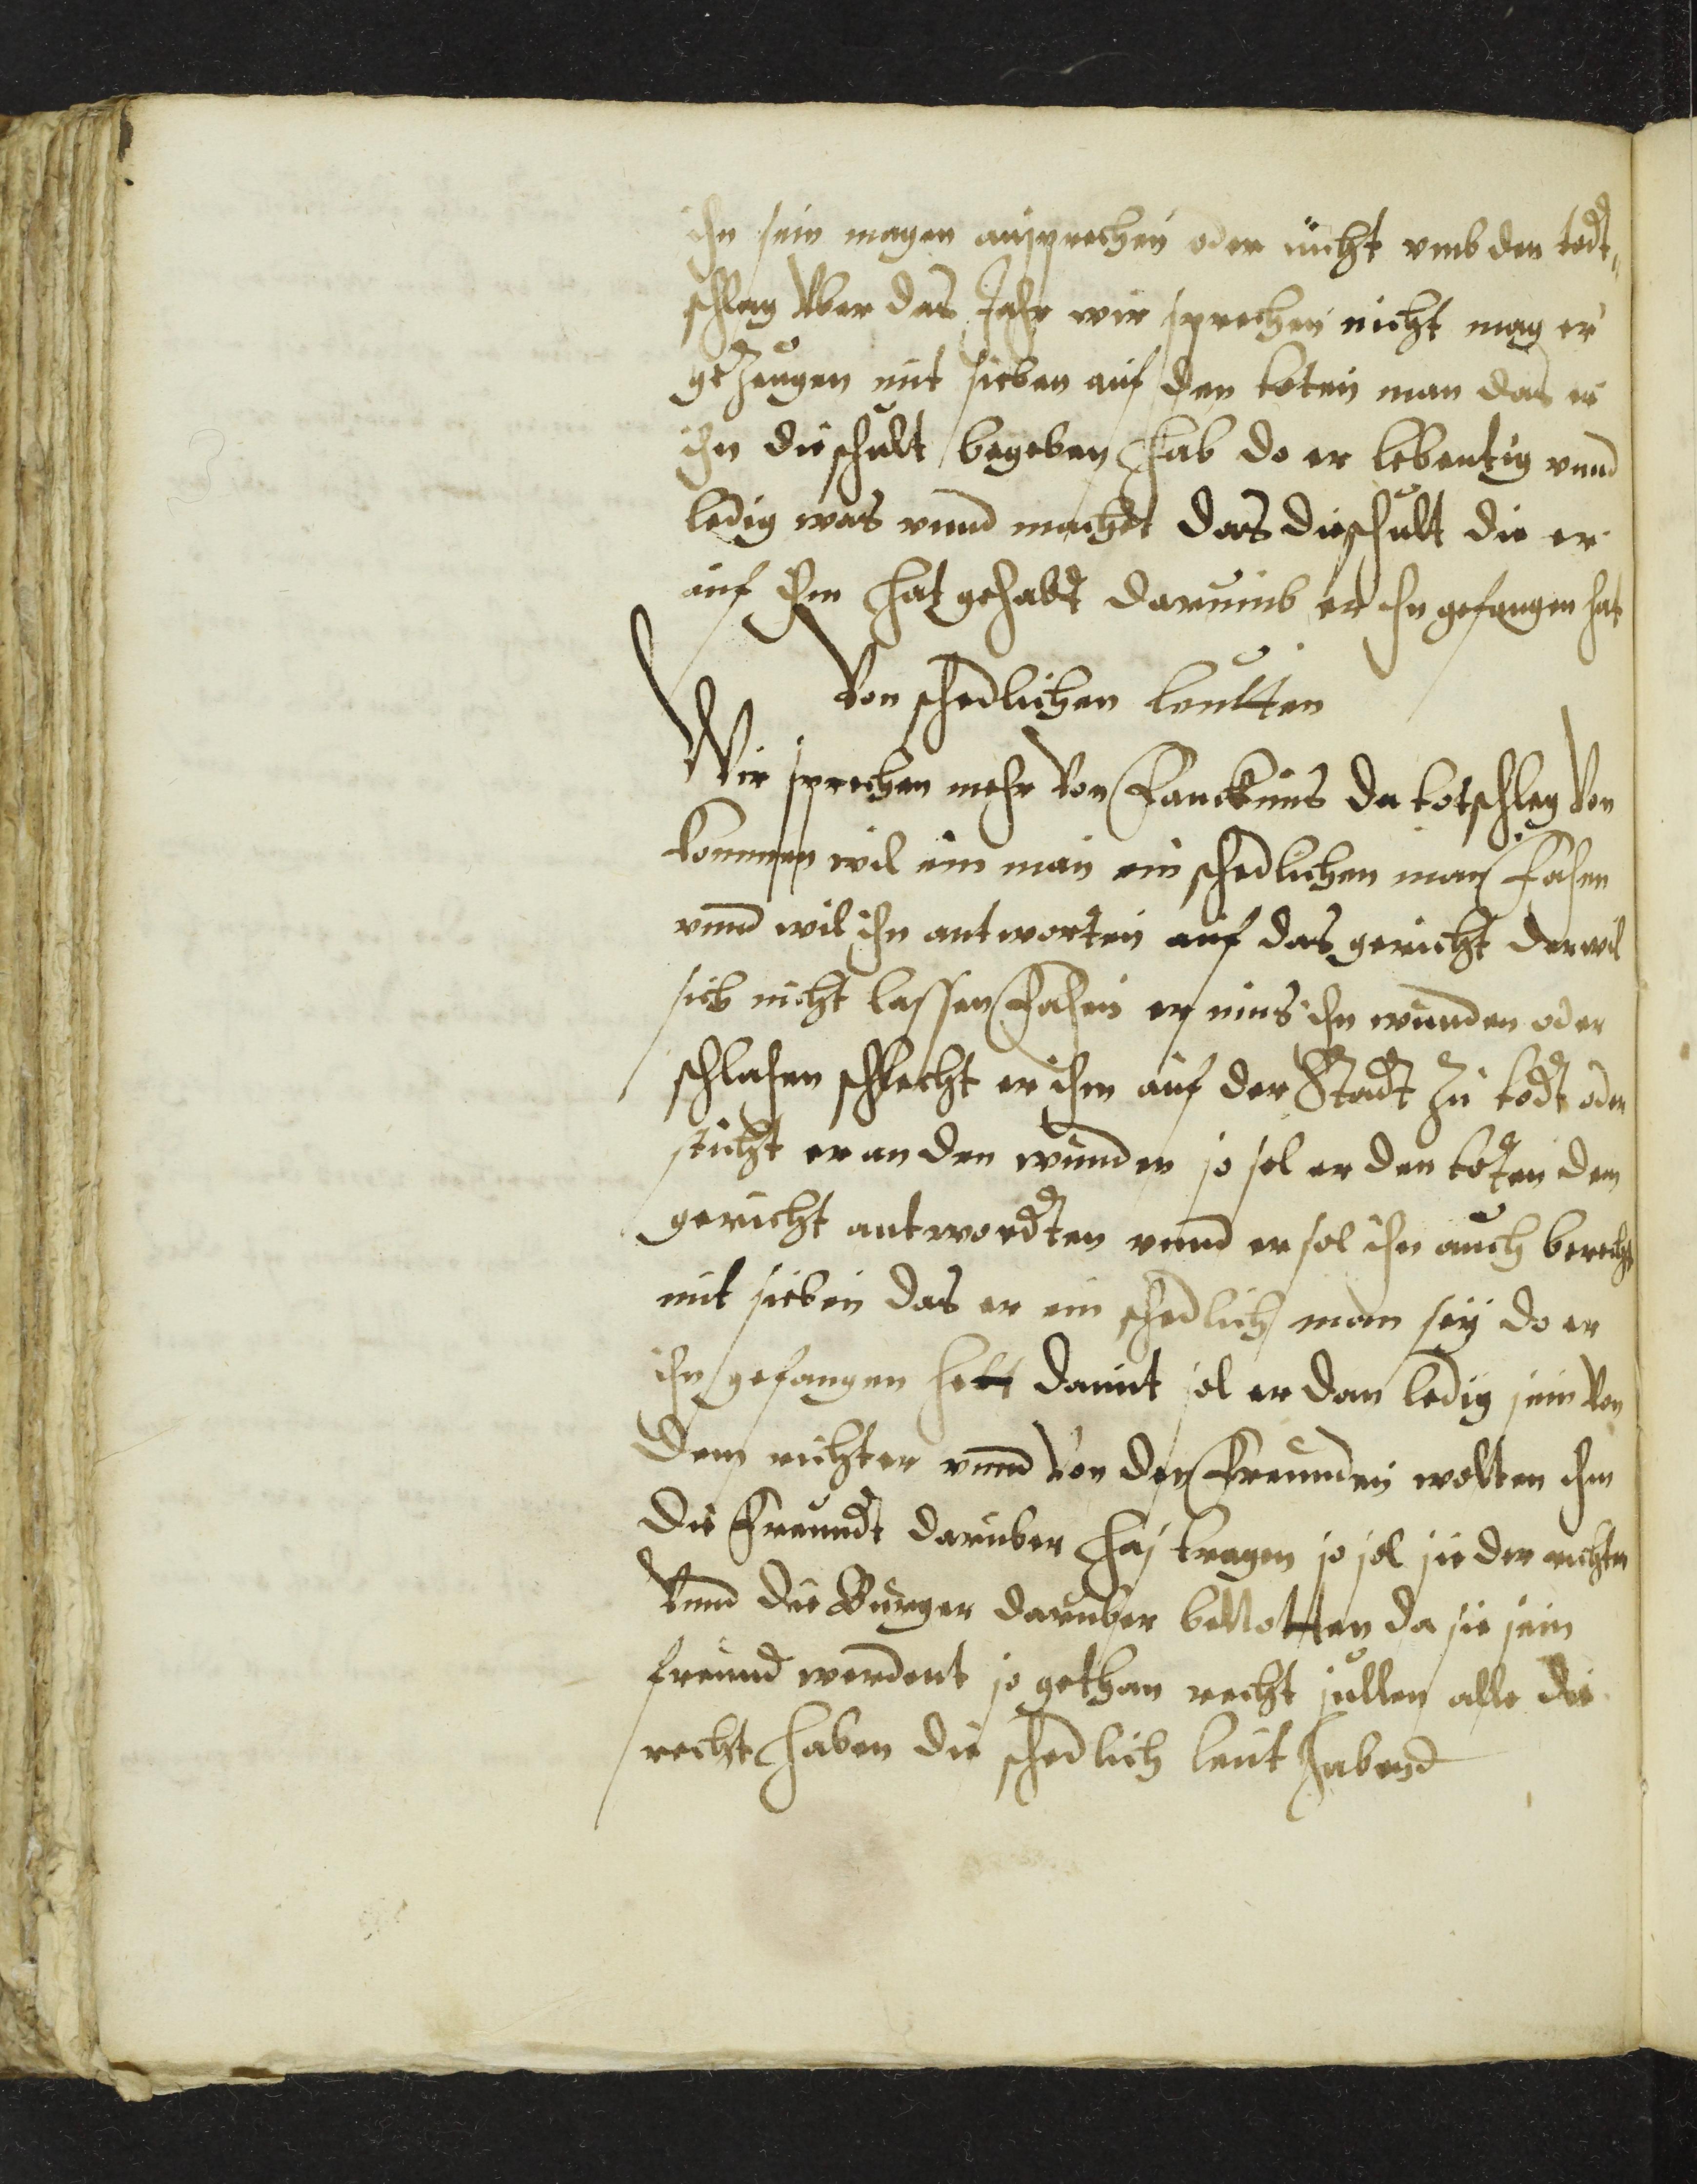 ihn sein magen ansprechen oder nicht vmb den todt„
schlag Vber das Jahr wir sprechen nicht mag er
gezeugen mit sieben auf den toten man das er
ihn die schult begeben hab do er lebentig vnnd
ledig was vnnd machdt das die schult die er
auf ihm hat gehabdt darumb er ihn gefangen hat
Von schedlichen leutten
Wir sprechen mehr von Fancknus da totschleg Von
kommen wil ein man ein schedlichen man Fahen
vnnd wil ihn antworten auf das gericht der wil
sich nicht lassen Fahen er mus ihn wunden oder
schlahen schlecht er ihm auf der Stadt zu todt oder
sticht er an den wunden so sol er den toten dem
gericht antwordten vnnd er sol ihn auch berecht
mit sieben das er ein schedlich man sey do er
ihn gefangen hett damit sol er dan ledig sein von
dem richter vnnd von den Freunden wolten ihm
die Freundt daruber has tragen so sol sie der richter
Vnnd die Burger daruber benotten da sie sein
freund werdent so gethan recht sullen alle die
recht haben die schedlich leut habend